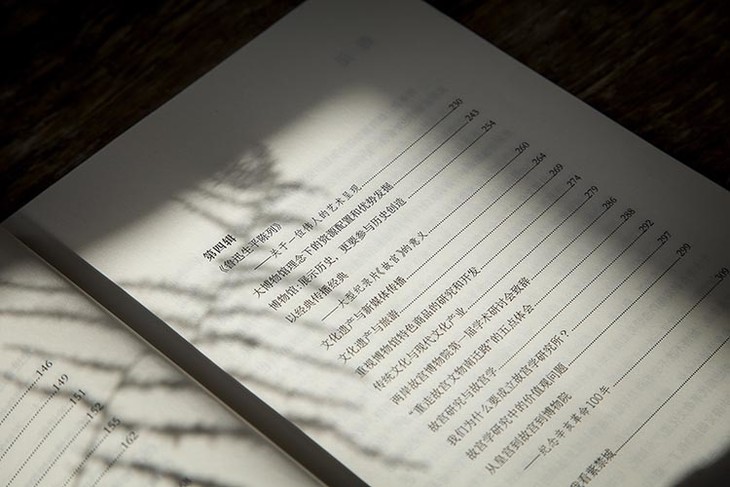 146
149
151
152
155
162
第四辑
《鲁迅生平陈列》
——关于一位伟人的艺术呈现 230
大博物馆理念下的资源配置和优势发掘 243
博物馆:展示历史,更要参与历史创造 254
以经典传播经典
——大型纪录片《故宫》的意义 260
文化遗产与新媒体传播 264
文化遗产与旅游 269
重视博物馆特色商品的研究和开发 274
传统文化与现代文化产业 279
两岸故宫博物院第一届学术研讨会致辞 286
“重走故宫文物南迁路”的五点体会 288
故宫研究与故宫学 292
我们为什么要成立故宫学研究所? 297
故宫学研究中的价值观问题 299
从皇宫到故宫博物院
——纪念辛亥革命100年 309
看紫禁城